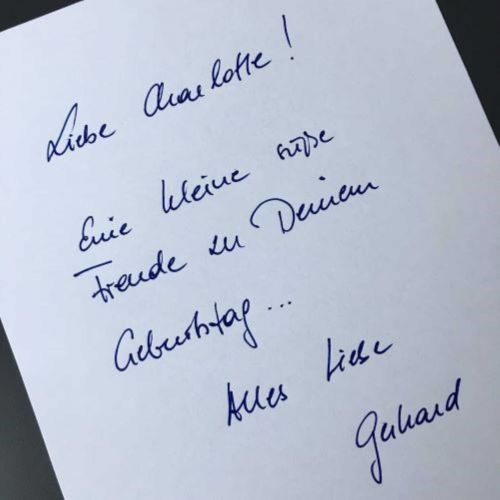 Liebe Charlotte!
Eine kleine süße
Freude zu Deinem
Geburtstag...
Alles Liebe
Gerhard